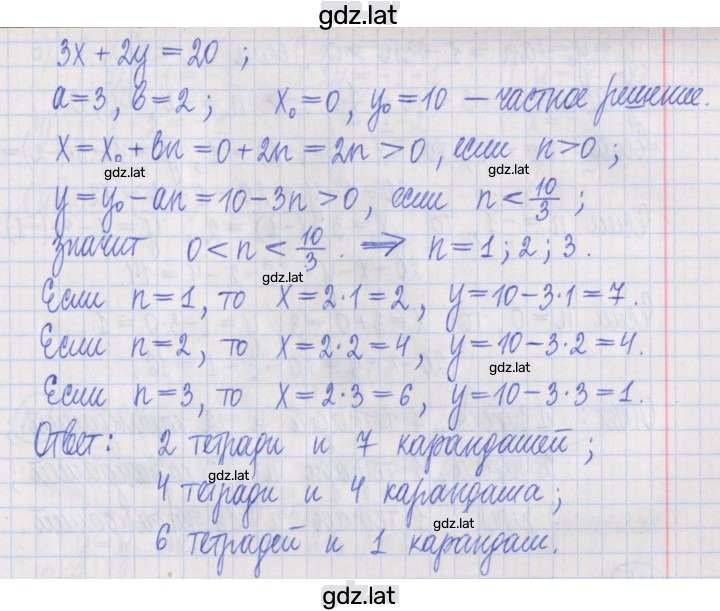 gdz.lat
3x + 2y = 20 ;
a = 3 , b = 2 ; x₀ = 0 , y₀ = 10 — частное решение.
x = x₀ + bn = 0 + 2n = 2n > 0 , если n > 0 ;
gdz.lat gdz.lat
y = y₀ - an = 10 - 3n > 0 , если n < 10/3 ;
значит 0 < n < 10/3 . ⇒ n = 1 ; 2 ; 3 .
gdz.lat
Если n = 1 , то x = 2·1 = 2 , y = 10 - 3·1 = 7 .
Если n = 2 , то x = 2·2 = 4 , y = 10 - 3·2 = 4 .
gdz.lat
Если n = 3 , то x = 2·3 = 6 , y = 10 - 3·3 = 1 .
Ответ: 2 тетради и 7 карандашей ;
gdz.lat
4 тетради и 4 карандаша ;
gdz.lat
6 тетрадей и 1 карандаш .
gdz.lat